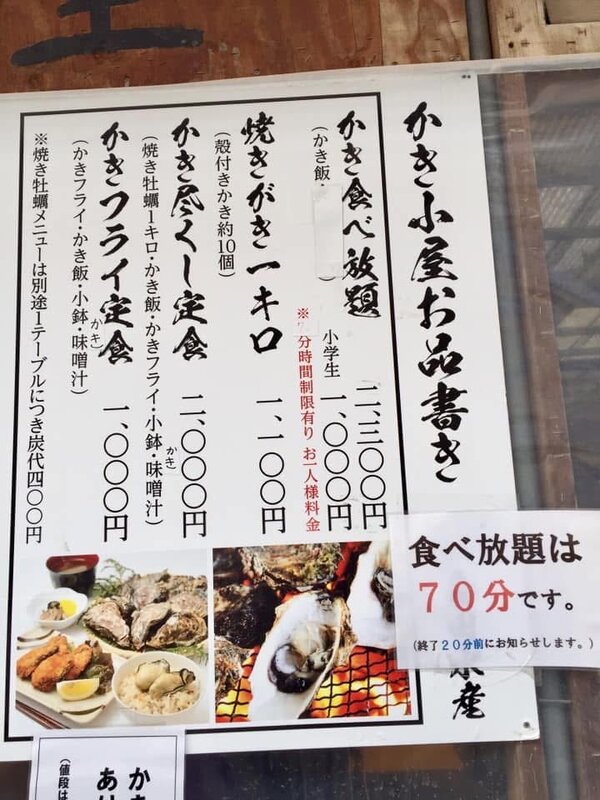 かき小屋お品書き
かき食べ放題 二、三〇〇円
(かき飯・
小学生 一、〇〇〇円
※ 分時間制限有り お一人様料金
焼きがき一キロ 一、一〇〇円
(殻付きかき約10個)
かき尽くし定食 二、〇〇〇円
(焼き牡蠣1キロ・かき飯・かきフライ・小鉢・味噌汁)
かき
かきフライ定食 一、〇〇〇円
(かきフライ・かき飯・小鉢・味噌汁)
かき
※焼き牡蠣メニューは別途1テーブルにつき炭代四〇〇円
水産
食べ放題は
70分です。
(終了20分前にお知らせします。)
かき
あり
(値段は